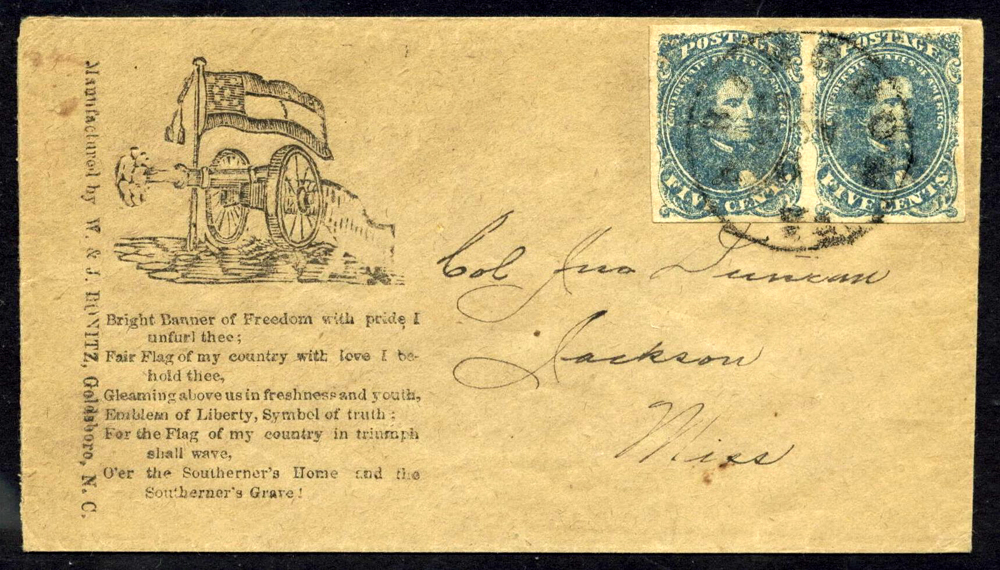 POSTAGE
CONFEDERATE STATES OF AMERICA
FIVE CENTS
POSTAGE
CONFEDERATE STATES OF AMERICA
FIVE CENTS
VA.
Manufactured by W. & J. BONITZ, Goldsboro, N. C.
Bright Banner of Freedom with pride I
unfurl thee;
Fair Flag of my country with love I be-
hold thee,
Gleaming above us in freshness and youth,
Emblem of Liberty, Symbol of truth;
For the Flag of my country in triumph
shall wave,
O'er the Southerner's Home and the
Southerner's Grave!
Col Jno Duncan
Jackson
Miss